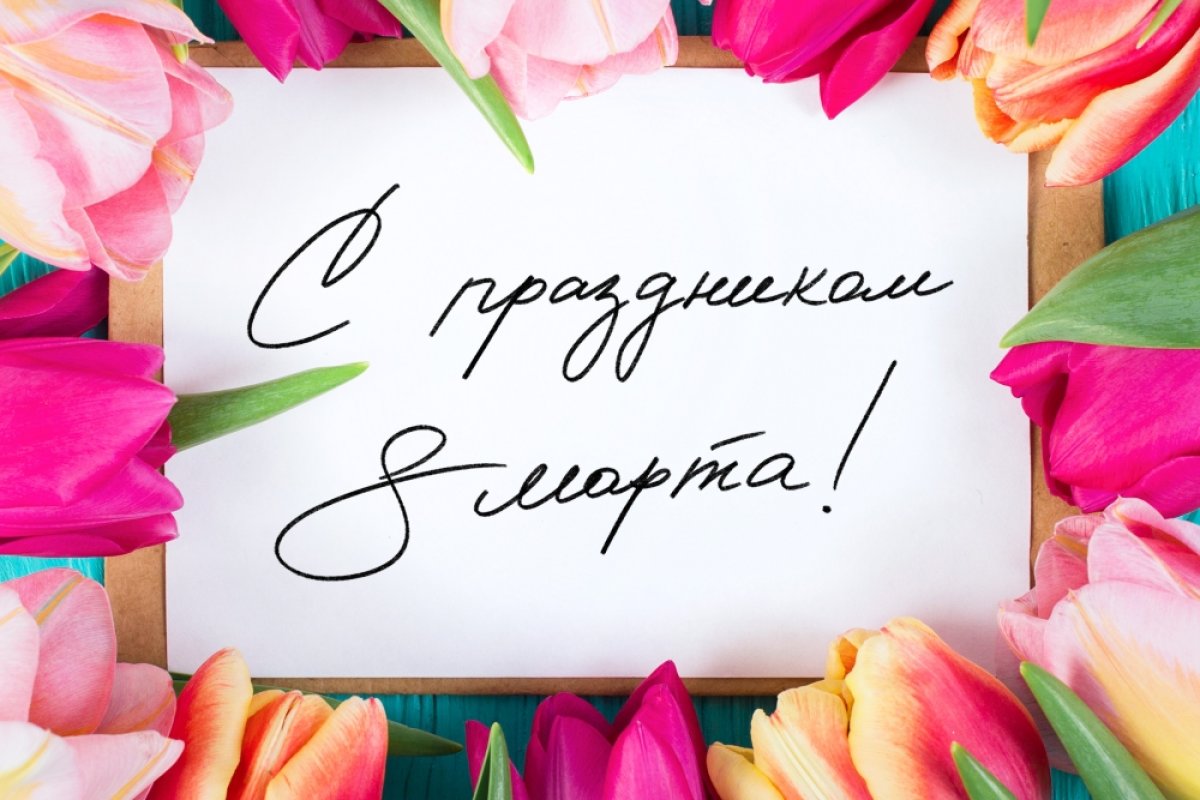 С праздником
8 марта!